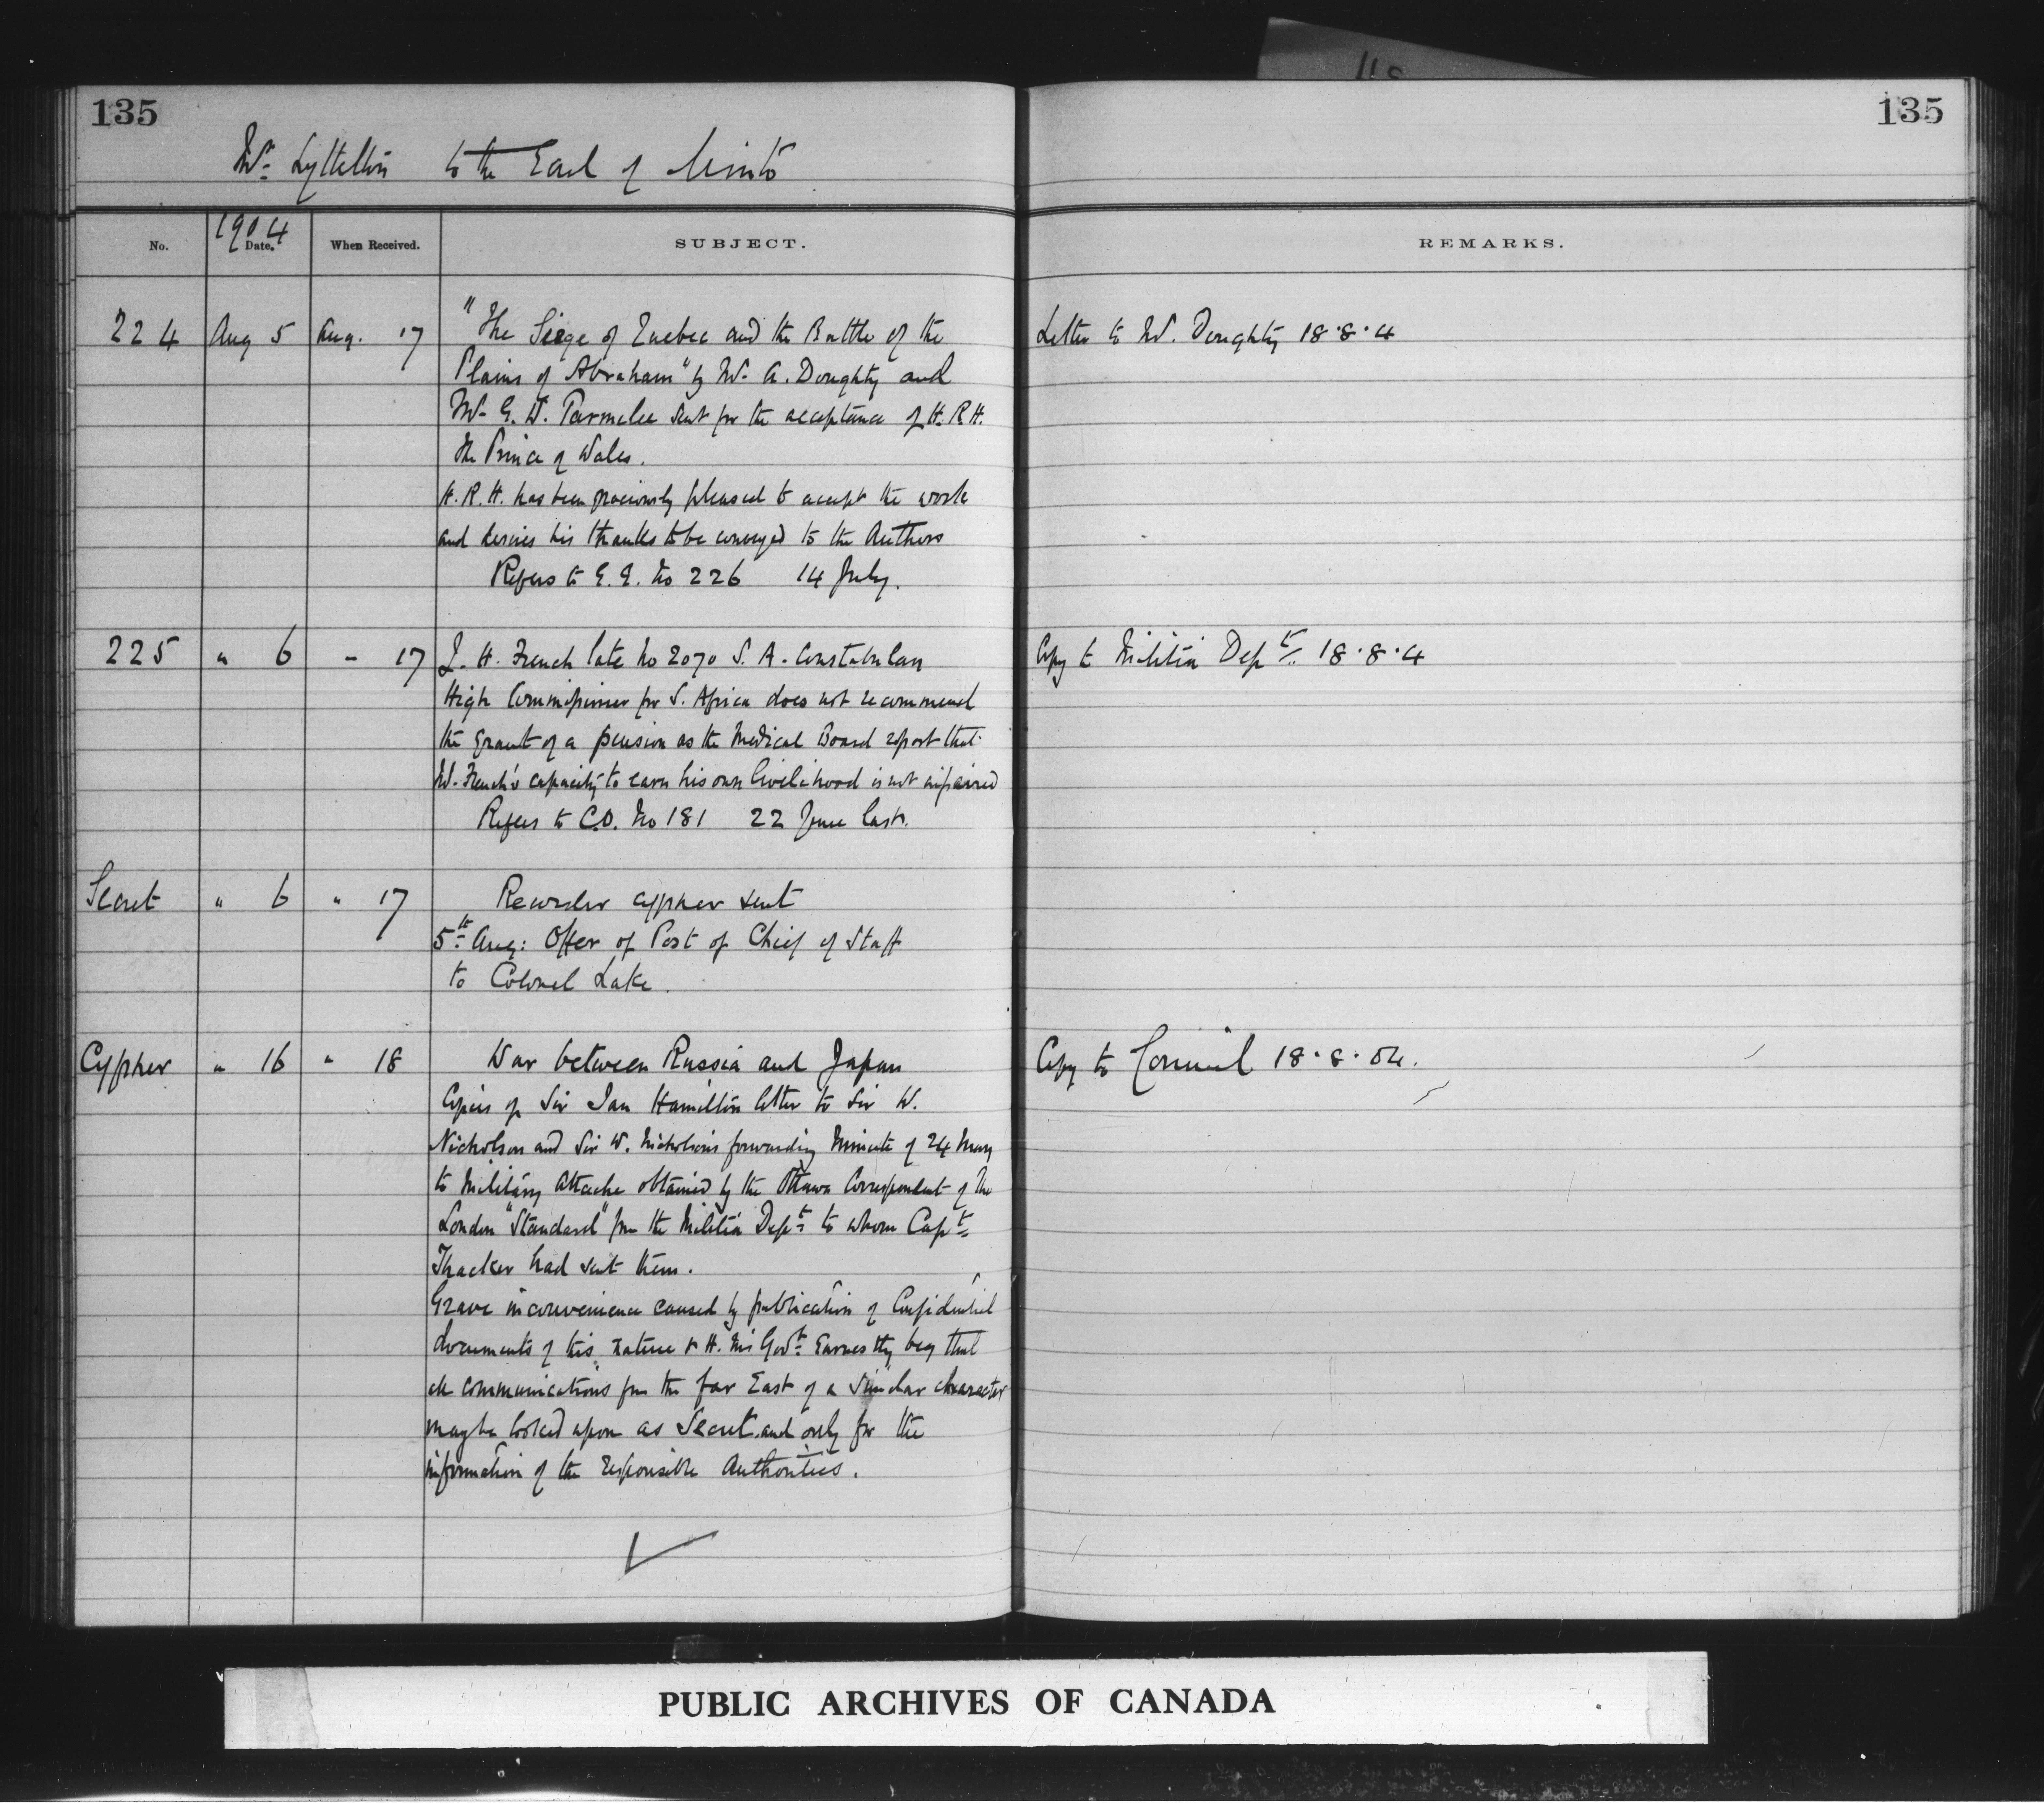 135
135
Mr. Lyttelton to the Earl of Minto
No.
1904
Date.
When Received.
SUBJECT.
REMARKS.
224 Aug 5 Aug. 17 "The Siege of Quebec and the Battle of the
Plains of Abraham" by Mr. A. Doughty and
Mr. G. W. Parmelee sent for the acceptance of H.R.H.
the Prince of Wales.
H.R.H. has been graciously pleased to accept the work
and desires his thanks to be conveyed to the Authors
Refers to G.G. No 226 14 July.
Letter to Mr. Doughty 18.8.4
225 " 6 " 17 J. H. French late No 2070 S. A. Constabulary
High Commissioner for S. Africa does not recommend
the grant of a pension as the Medical Board report that
Mr. French's capacity to earn his own livelihood is not impaired
Refers to C.O. No 181 22 June last.
Copy to Militia Dept. 18.8.4
Secret " 6 " 17 Recorder cypher sent
5th Aug: Offer of Post of Chief of Staff
to Colonel Lake.
Cypher " 16 " 18 War between Russia and Japan
Copies of Sir Ian Hamilton letter to Sir W.
Nicholson and Sir W. Nicholson's forwarding Minute of 24 May
to Military Attache obtained by the Ottawa Correspondent of the
London "Standard" from the Militia Dept. to whom Capt.
Thacker had sent them.
Grave inconvenience caused by publication of Confidential
documents of this nature & H. M's Govt. Earnestly beg that
all communications from the far East of a similar character
may be looked upon as Secret and only for the
information of the responsible Authorities.
Copy to Council 18.8.04.
PUBLIC ARCHIVES OF CANADA